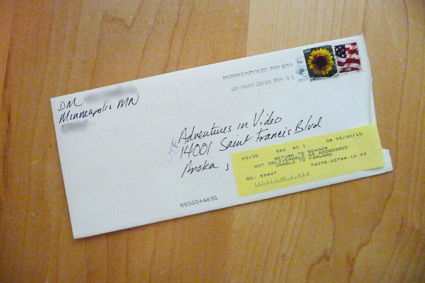 DM
Minneapolis MN
MINNEAPOLIS MN
20 MAY 2010 PM
Adventures in Video
14001 Saint Francis Blvd
Anoka,
NIXIE
RETURN TO SENDER
NOT DELIVERABLE AS ADDRESSED
UNABLE TO FORWARD